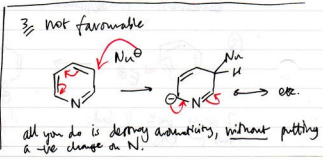 3, not favourable
Nu⊖
Nu
H
N
⊖
N
etc.
all you do is destroy aromaticity, without putting
a -ve charge on N.